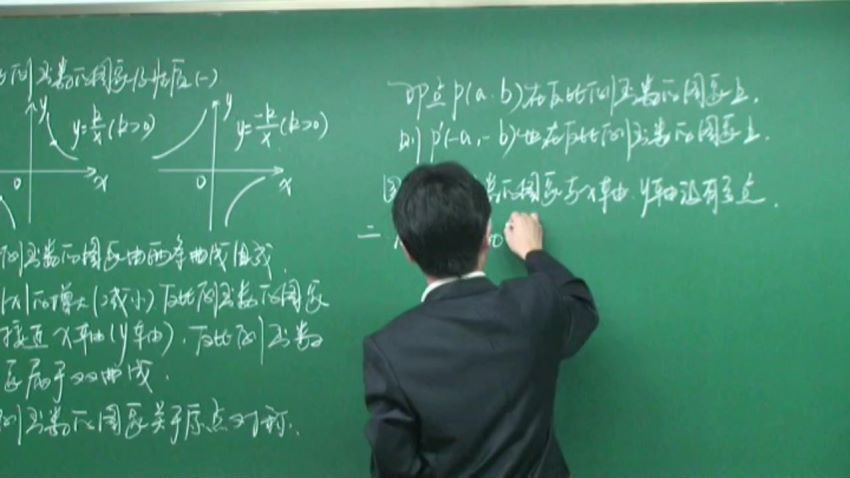 比例函数的图象及性质(一)
y
y=k/x(k>0)
0
x
y
y=-k/x(k>0)
0
x
例函数的图象由两条曲线组成.
|x|的增大(减小)反比例函数的图象
接近x轴(y轴).反比例函数
象属于双曲线.
例函数的图象关于原点对称.
即点P(a.b)在反比例函数的图象上.
则P'(-a,-b)也在反比例函数的图象上.
数的图象与x轴.y轴没有交点.
二